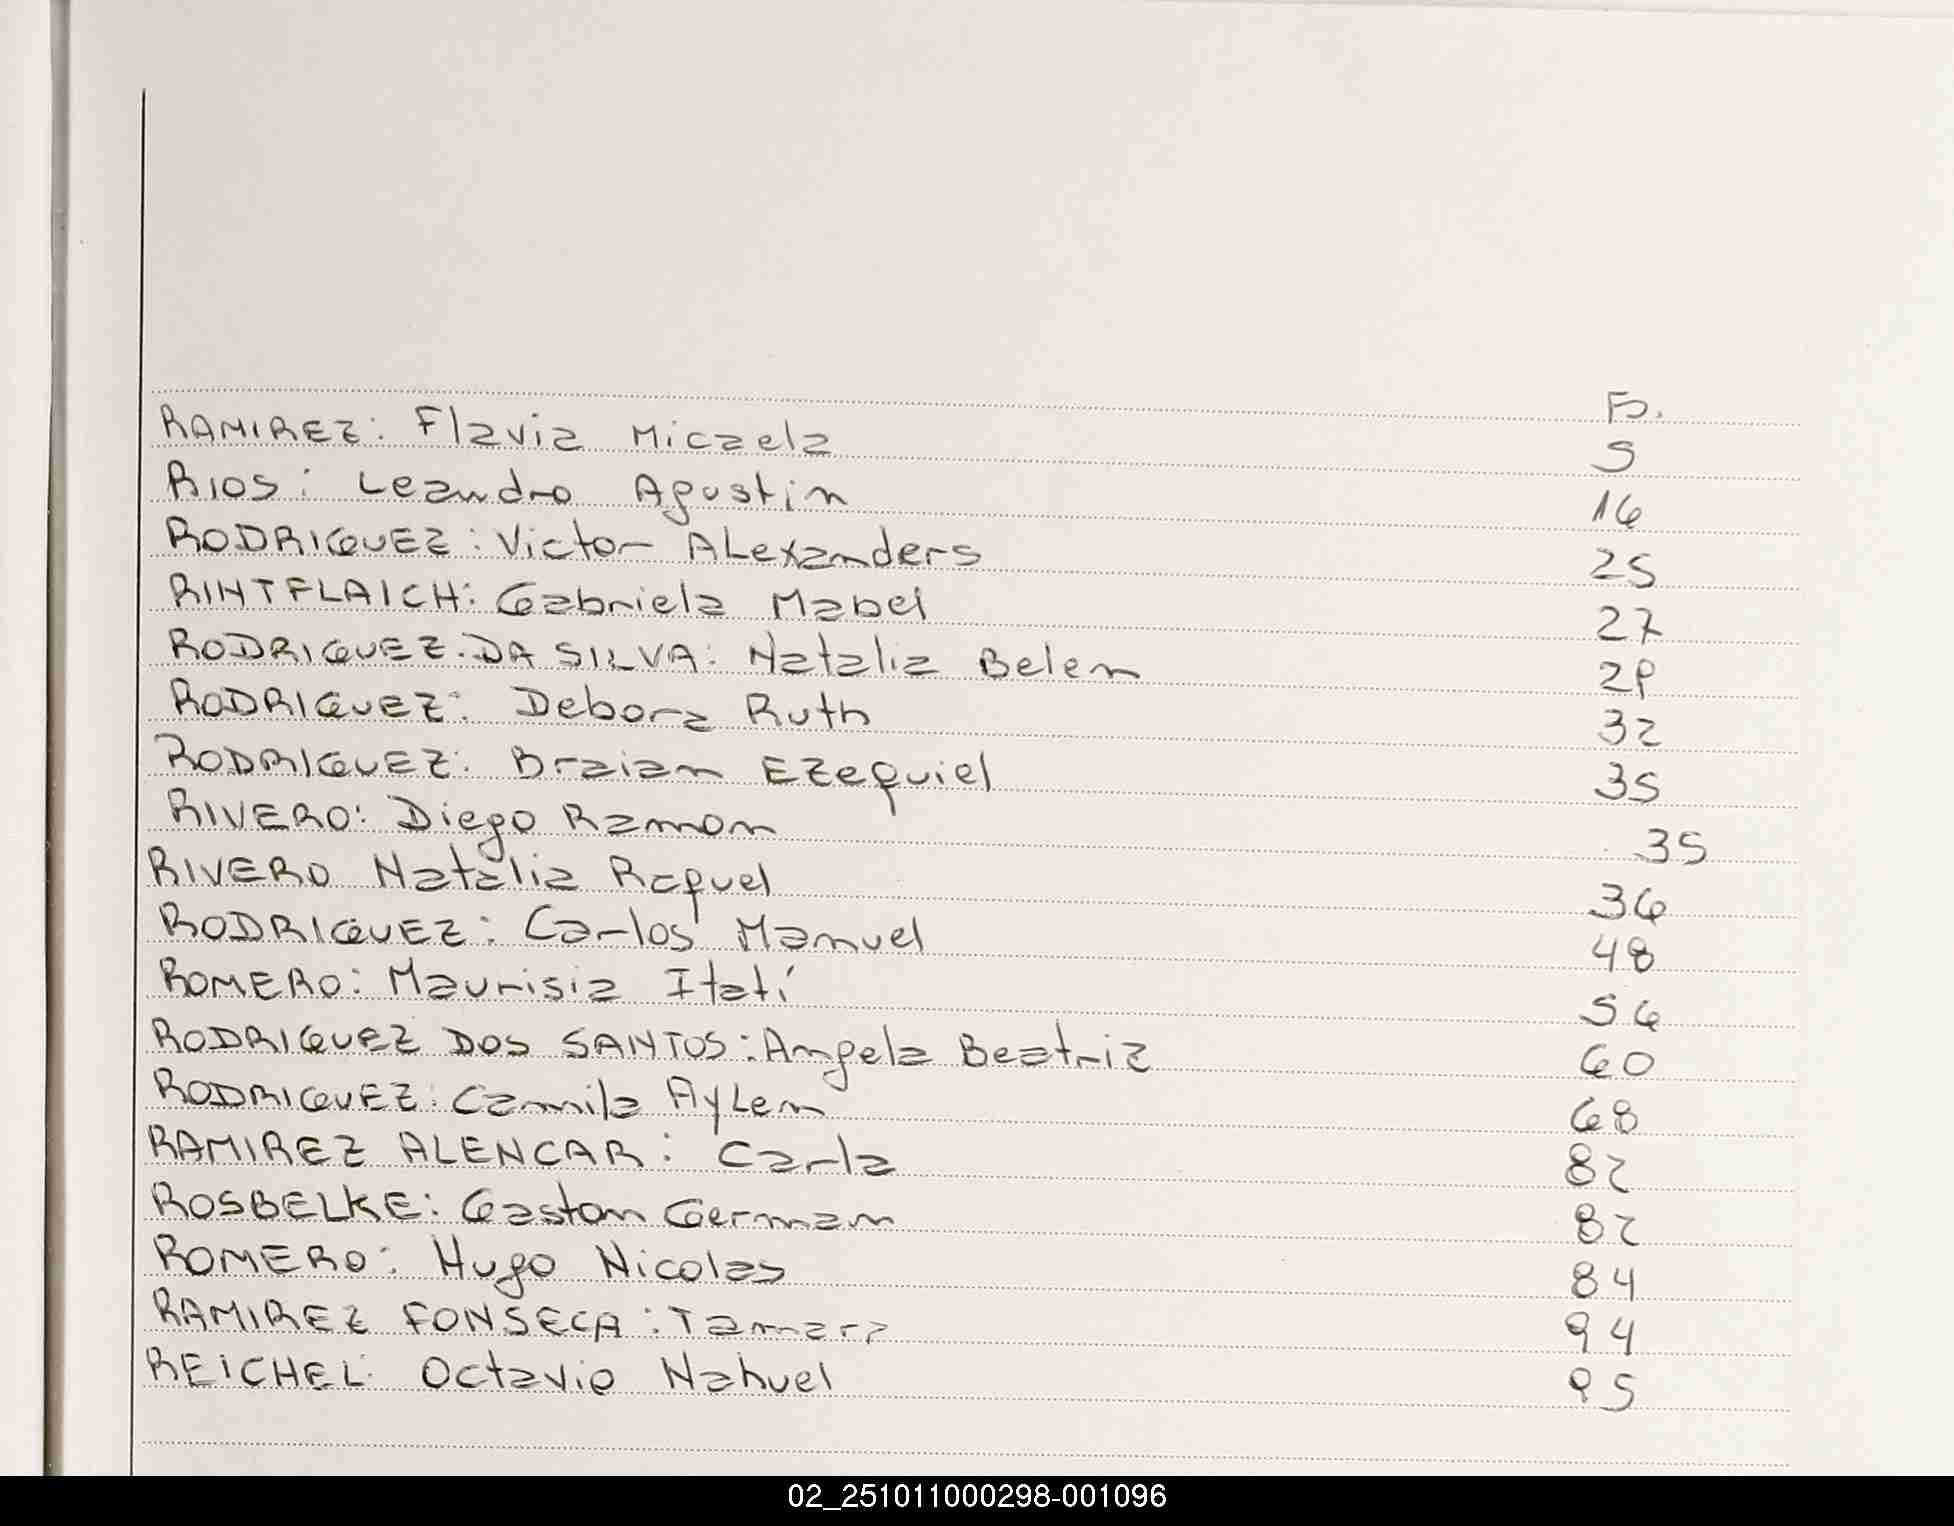 Fs.
RAMIREZ: Flavia Micaela 5
RIOS: Leandro Agustin 16
RODRIGUEZ: Victor ALexanders 25
RINTFLAICH: Gabriela Mabel 27
RODRIGUEZ.DA SILVA: Natalia Belen 29
RODRIGUEZ: Debora Ruth 32
RODRIGUEZ: Braian EZequiel 35
RIVERO: Diego Ramon 35
RIVERO Natalia Raquel 36
RODRIGUEZ: Carlos Manuel 48
ROMERO: Maurisia Itatí 56
RODRIGUEZ DOS SANTOS: Angela Beatriz 60
RODRIGUEZ: Camila AyLen 68
RAMIREZ ALENCAR: Carla 82
ROSBELKE: Gaston German 82
ROMERO: Hugo Nicolas 84
RAMIREZ FONSECA: Tamara 94
REICHEL: Octavio Nahuel 95
02_251011000298-001096